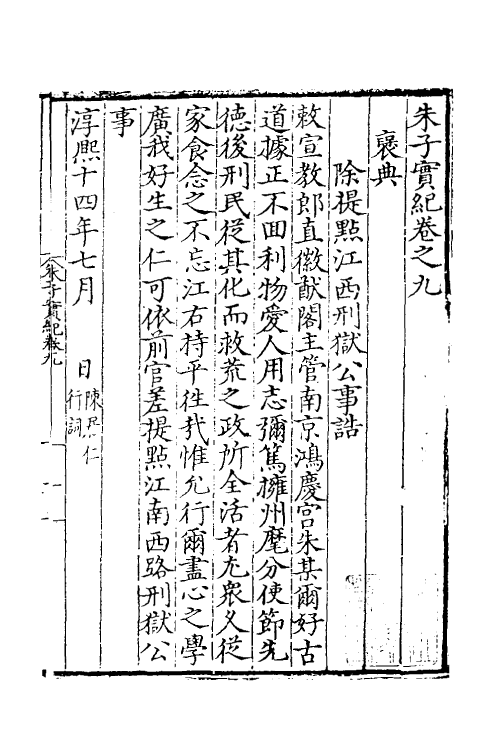 朱子實紀卷之九
褒典
除提點江西刑獄公事誥
敕宣教郎直徽猷閣主管南京鴻慶宮朱某爾好古
道據正不回利物愛人用志彌篤擁州麾分使節先
德後刑民從其化而救荒之政所全活者尤衆久從
家食念之不忘江右持平徃㢤惟允行爾盡心之學
廣我好生之仁可依前官差提點江南西路刑獄公
事
淳熙十四年七月　日陳居仁行詞
朱子實紀卷九
一